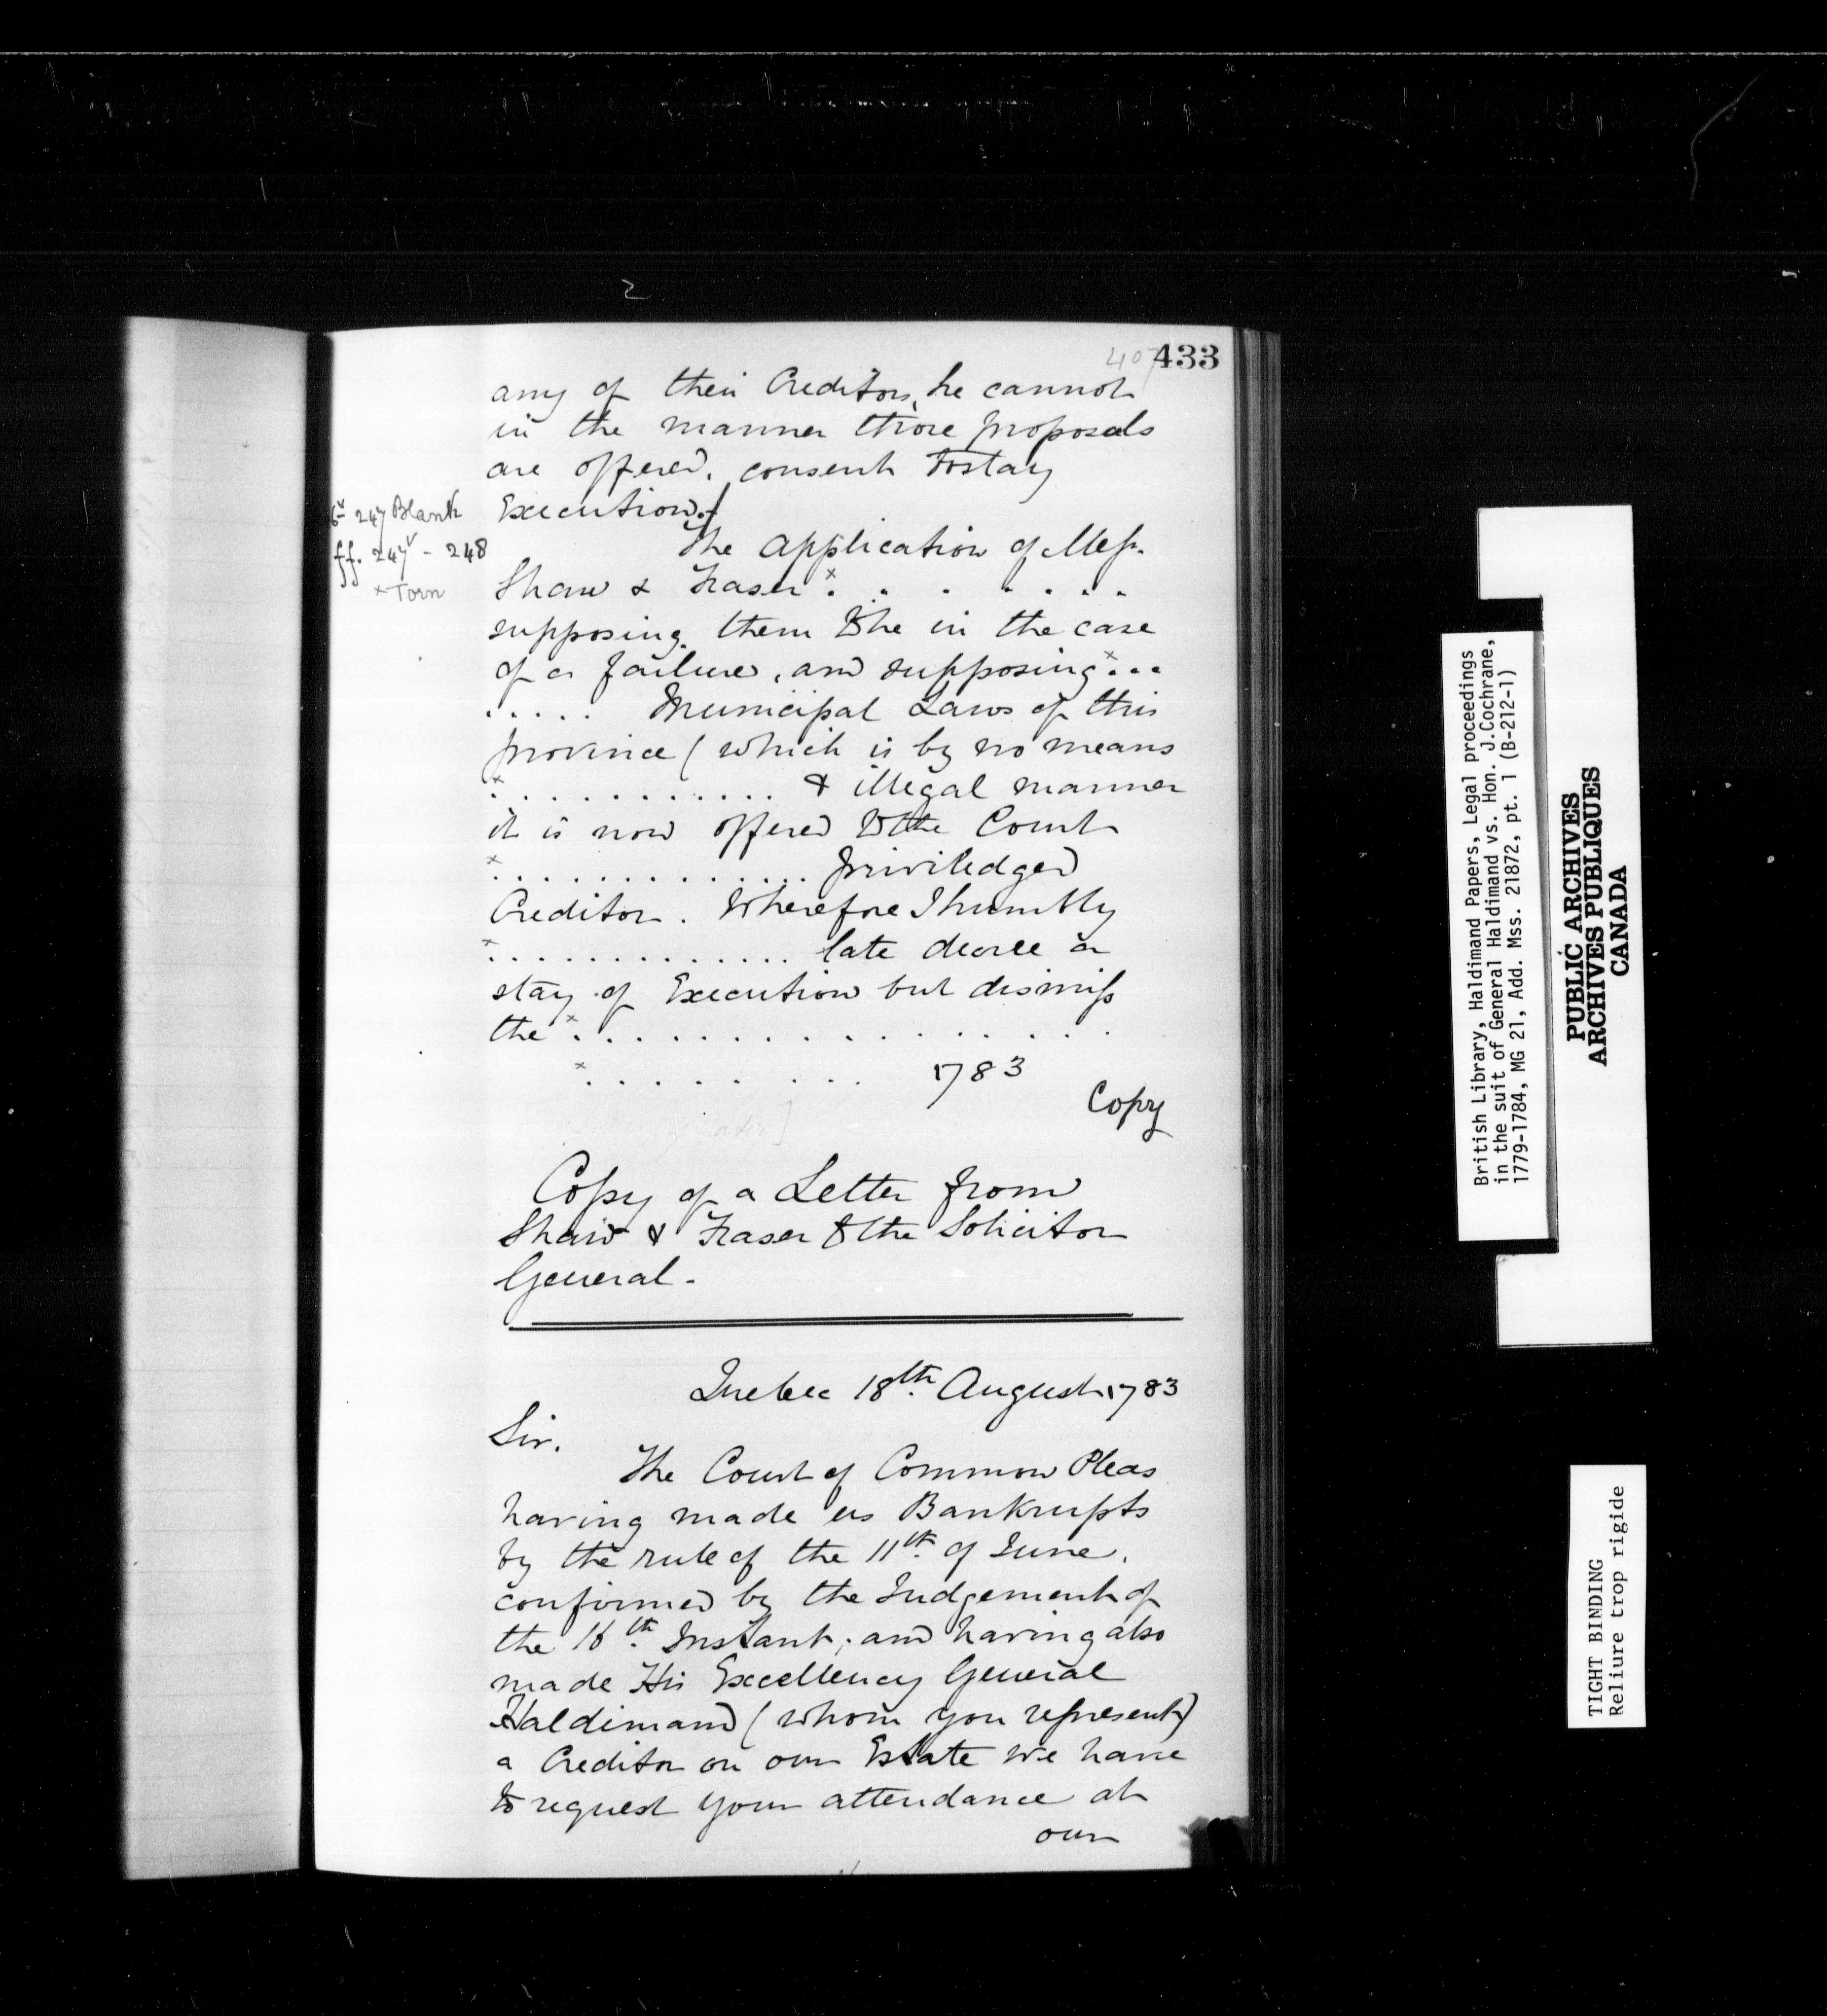 407 433
any of their Creditors, he cannot
in the manner those proposals
are offered, consent to stay
Execution.
247 Blank
ff. 247v - 248
x Torn
The application of Mess.
Shaw & Fraser x . . . . . . .
supposing them to be in the case
of a failure, and supposing x . . .
. . . . . Municipal Laws of this
province ( which is by no means
x . . . . . . . . . . . . & illegal manner
it is now offered to the Court
x . . . . . . . . . . . . . . priviledged
Creditor. Wherefore I humbly
x . . . . . . . . . . . . . late decree or
stay of Execution but dismiss
the x . . . . . . . . . . . . . . .
x . . . . . . . . 1783
Copy
Copy of a Letter from
Shaw & Fraser to the Solicitor
General -
Quebec 18th August 1783
Sir.
The Court of Common Pleas
having made us Bankrupts
by the rule of the 11th of June,
confirmed by the Judgement of
the 16th Instant; and having also
made His Excellency General
Haldimand ( whom you represent )
a Creditor on our Estate we have
to request your attendance at
our
British Library, Haldimand Papers, Legal proceedings
in the suit of General Haldimand vs. Hon. J.Cochrane,
1779-1784, MG 21, Add. Mss. 21872, pt. 1 (B-212-1)
PUBLIC ARCHIVES
ARCHIVES PUBLIQUES
CANADA
TIGHT BINDING
Reliure trop rigide